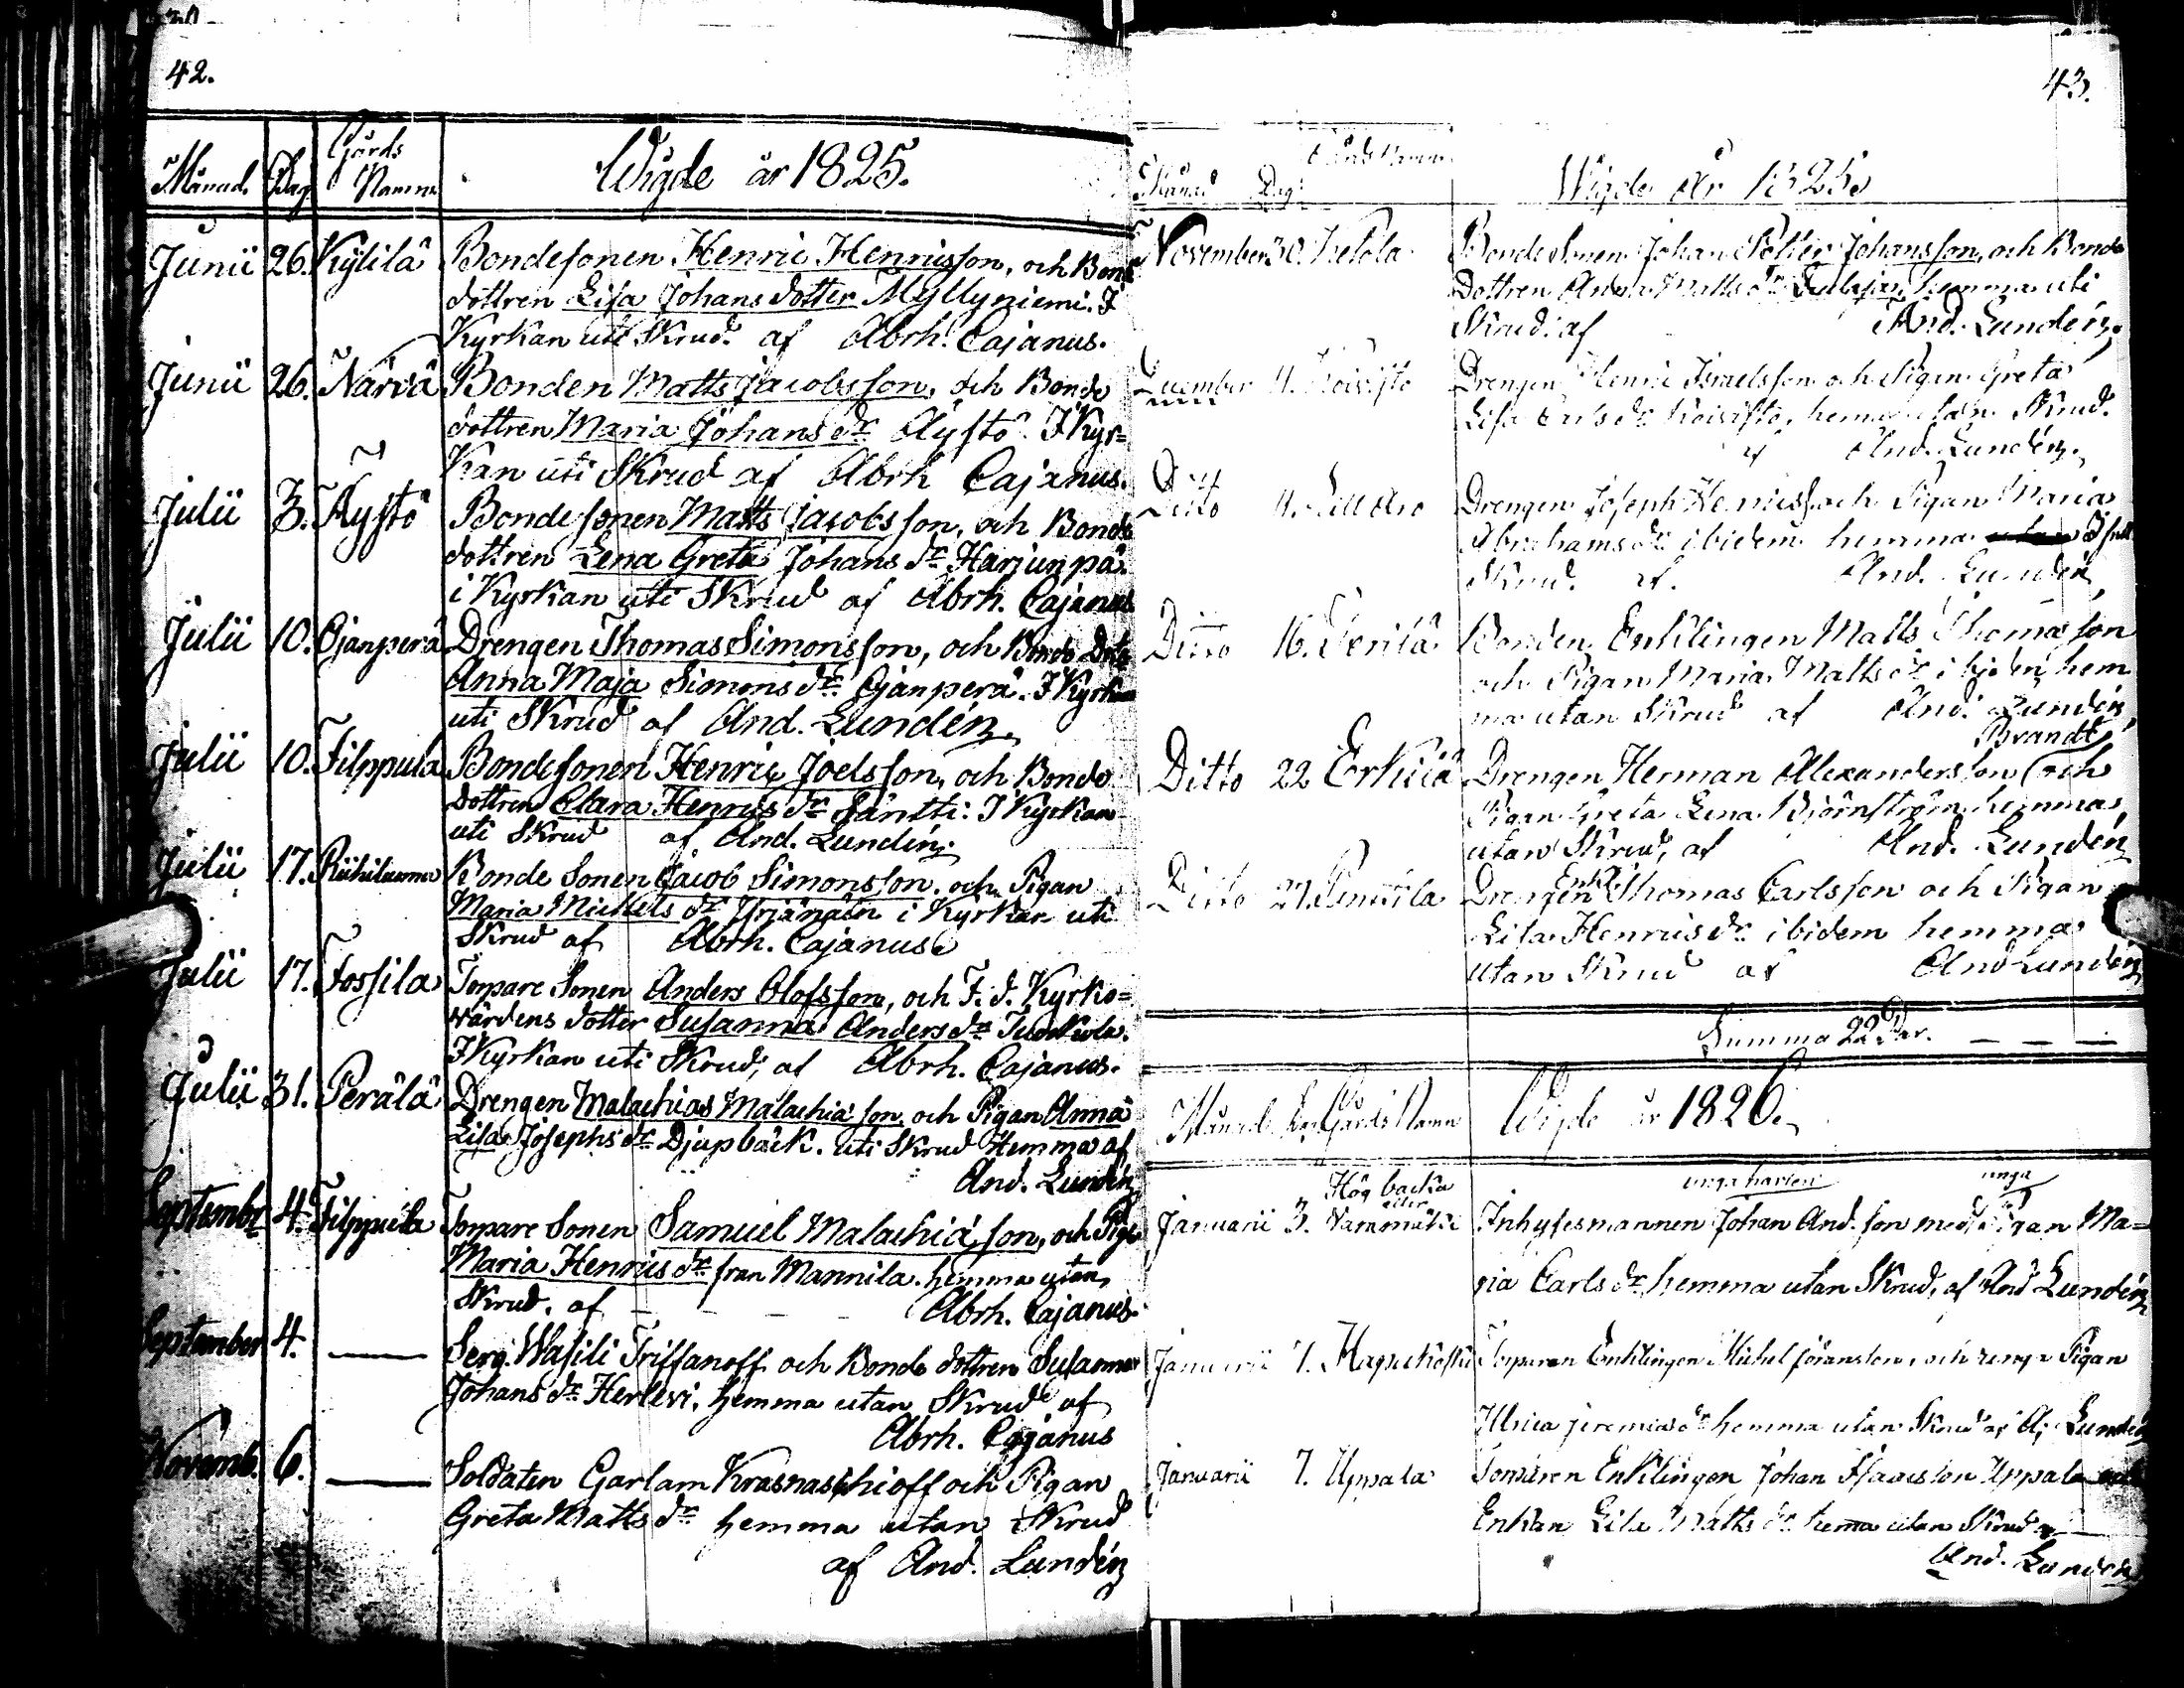 42.
Månad. Dag Gårds Namn Wigde år 1825.
Junii 26. Kylilä Bondesonen Henric Henricsson, och Bonde
dottren Lisa Johans dotter Myllyniemi. I
Kyrkan uti Skrud. af Abrh. Cajanus.
Junii 26. Närvä Bonden Matts Jacobsson, och Bonde
dottren Maria Johans dr Äystö. I Kyr=
kan uti Skrud af Abrh Cajanus.
Julii 3. Äystö Bondesonen Matts Jacobsson, och Bonde
dottren Lena Greta Johans dr Harjunpä.
i Kyrkan uti Skrud af Abrh. Cajanus
Julii 10. Ojanperä Drengen Thomas Simonsson, och Bonde Dott
Anna Maja Simons dr Ojanperä. I Kyrkan
uti Skrud af And. Lundén.
Julii 10. Filppula Bondesonen Henric Joelsson, och Bonde
dottren Clara Henrics dr Säntti: I Kyrkan
uti Skrud af And. Lundén.
Julii 17. Riihiluoma Bonde Sonen Jacob Simonsson. och Pigan
Maria Michels dr i Kyrkan uti
Skrud af Abrh. Cajanus
Julii 17. Fossila Torpare Sonen Anders Olofsson, och F. d. Kyrko=
värdens dotter Susanna Anders dr
I Kyrkan uti Skrud, af Abrh. Cajanus.
Julii 31. Perälä Drengen Malachias Malachiasson, och Pigan Anna
Lisa Josephs dr Djupbäck. uti Skrud Hemma af
And. Lundén
Septembr 4. Filppula Torpare Sonen Samuel Malachiasson, och Piga
Maria Henrics dr från Mannila. hemma utan
Skrud. af Abrh. Cajanus
September 4. — Serg. Wasili Triffanoff och Bonde dottren Susanna
Johans dr Herlevi, hemma utan Skrud af
Abrh. Cajanus
Novemb. 6. — Soldaten Garlam och Pigan
Greta Matts dr hemma utan Skrud
af And. Lundén
43.
Månad Dag Gårds Namn Wigde År 1825
November 30. Ketola Bonde Sonen Johan Petter Johansson, och Bonde
Dottren Anna Matts dr hemma uti
Skrud. af And. Lundén.
December 4. Koivisto Drengen Henric Israelsson och Pigan Greta
Lisa Carls dr Koivisto, hemma utan Skrud.
af And. Lundén.
Ditto 4. Drengen Joseph Henricss. och Pigan Maria
Abrahams dr ibidem hemma
Skrud. af. And. Lundén
Ditto 16. Penilä Bonden Enklingen Matts Thomasson
och Pigan Maria Matts dr ibidem hem
ma utan Skrud af And. Lundén
Brandt
Ditto 22 Erkilä Drengen Herman Alexandersson (och
Pigan Greta Lena Björnström hemma
utan Skrud, af And. Lundén
Ditto 27. Penttila Drengen Enkl. Thomas Carlsson och Pigan
Lisa Henrics dr ibidem hemma
utan Skrud af And Lundén
Summa 22 Par.
Månad Dag Gårds Namn Wigde år 1826.
Hög backa unga karlen unga
eller
Januarii 3. Vammäki Inhysesmannen Johan And.son med Pigan Ma=
ria Carls dr hemma utan Skrud, af And Lundén
Januarii 7. Torparen Enklingen Michel Göransson, och unga Pigan
Ulrica Jeremias dr hemma utan Skrud af A; Lundén
Januarii 7. Uppala Enklingen Johan Isaacsson Uppala och
Enkan Lisa Matts dr hema utan Skrud af
And. Lundén